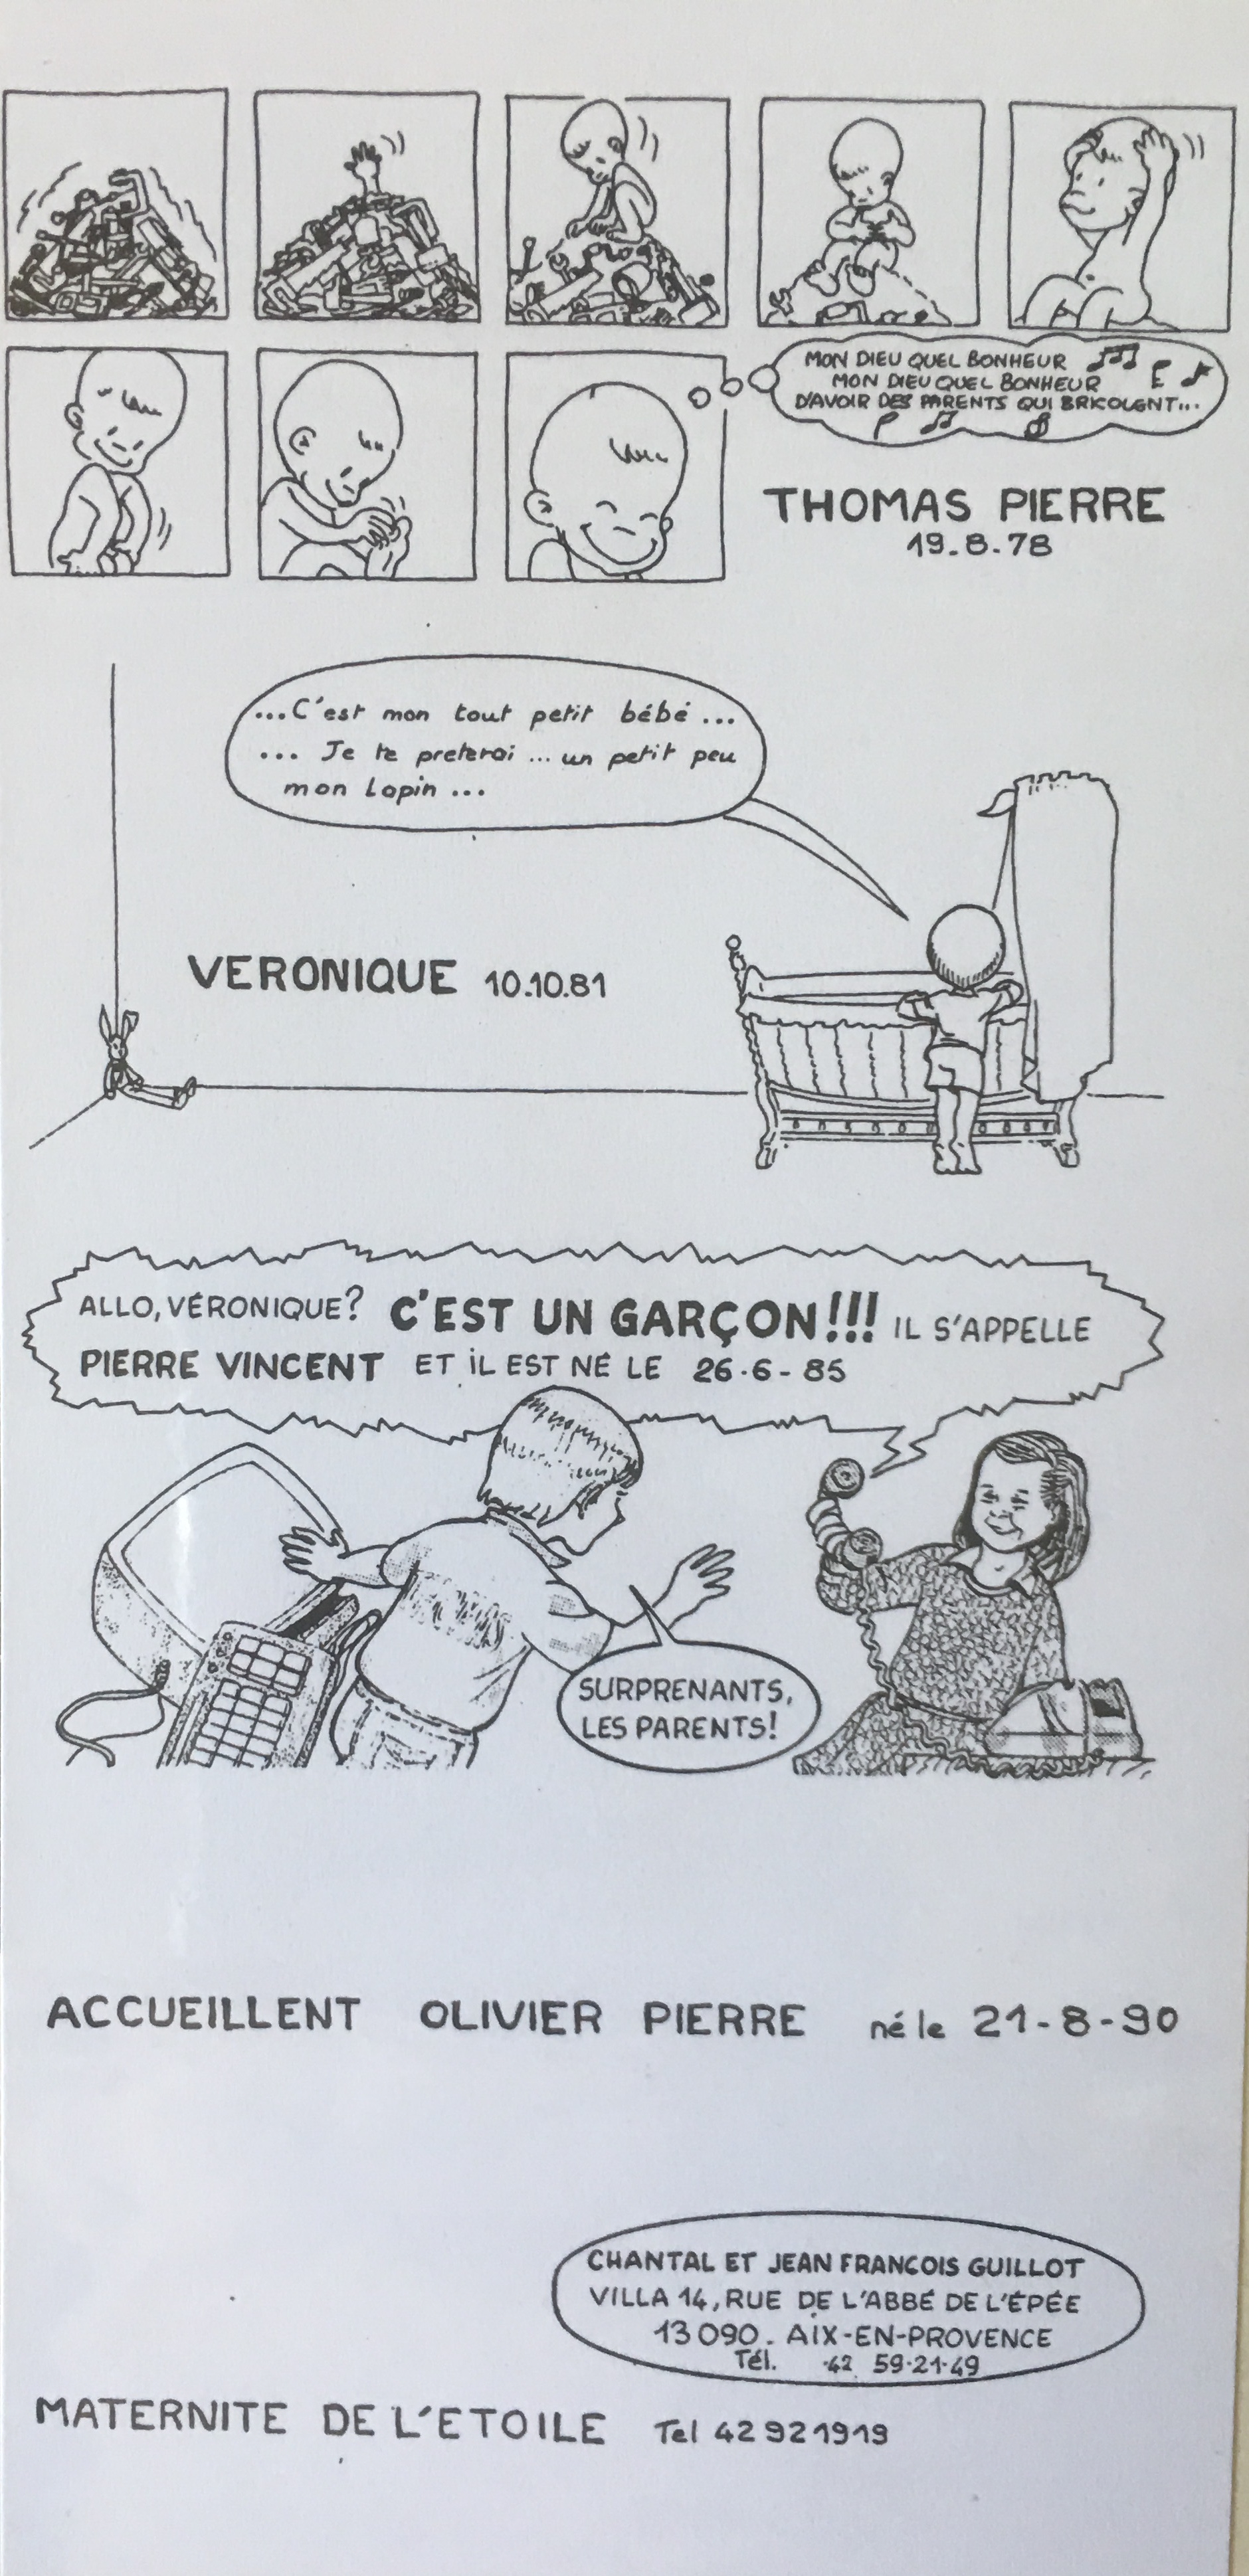 MON DIEU QUEL BONHEUR
MON DIEU QUEL BONHEUR
D'AVOIR DES PARENTS QUI BRICOLENT...
THOMAS PIERRE
19.8.78
...C'est mon tout petit bébé...
... Je te preterai ... un petit peu
mon lapin ...
VERONIQUE 10.10.81
ALLO, VÉRONIQUE? C'EST UN GARÇON!!! IL S'APPELLE
PIERRE VINCENT ET IL EST NÉ LE 26.6-85
SURPRENANTS,
LES PARENTS!
ACCUEILLENT OLIVIER PIERRE né le 21-8-90
CHANTAL ET JEAN FRANCOIS GUILLOT
VILLA 14, RUE DE L'ABBÉ DE L'ÉPÉE
13090. AIX-EN-PROVENCE
Tél. 42 59.21.49
MATERNITE DE L'ETOILE Tel 42921919